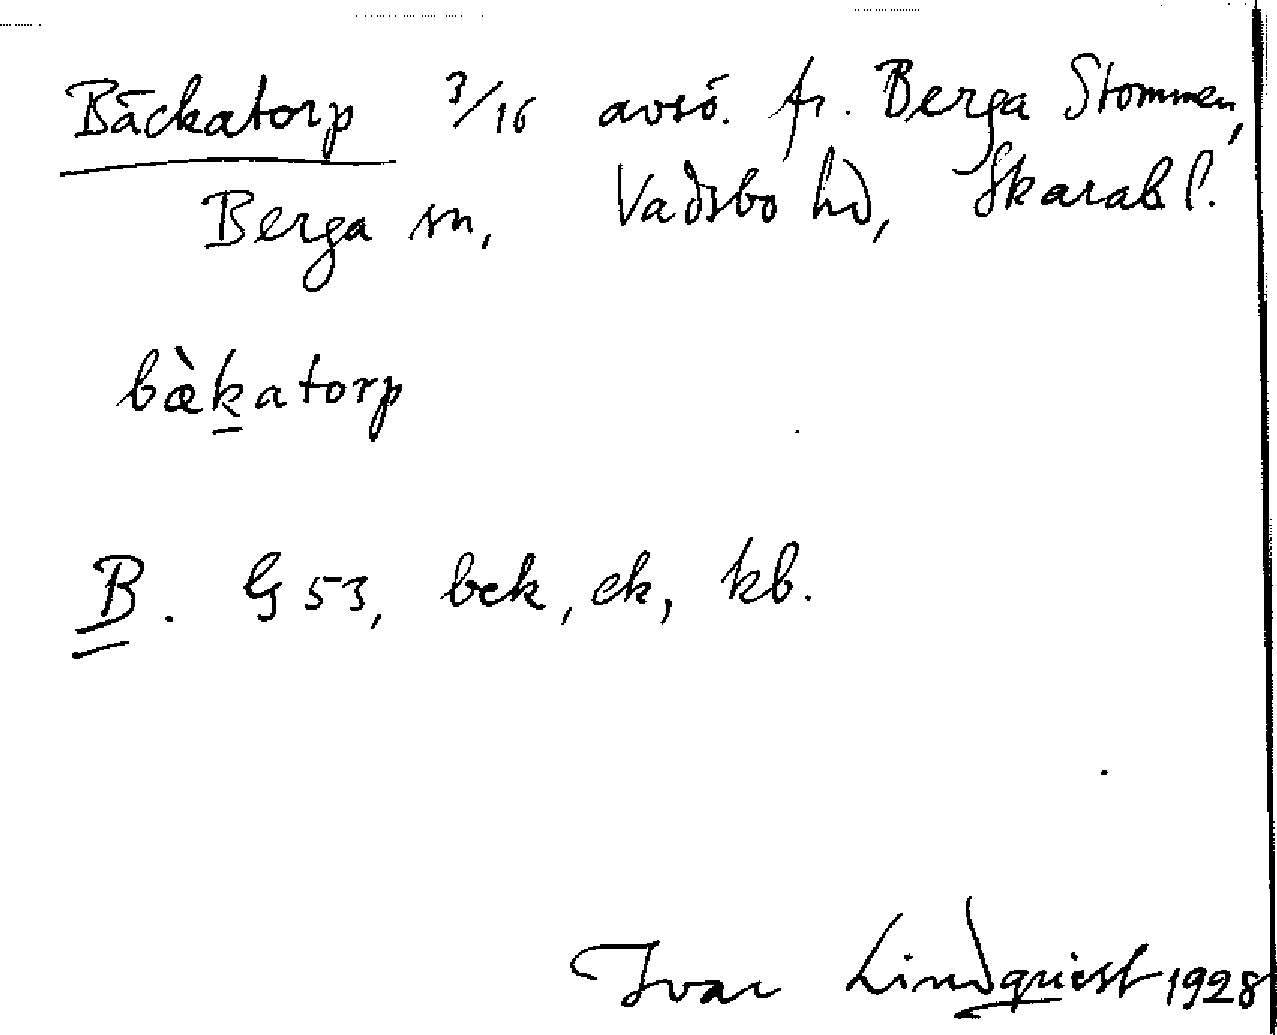 Bäckatorp 3/16 avsö. fr. Berga Stommen,
Berga sn, Vadsbo hd, Skarab l.
bæ̀k̲atorp
B. G 53, bek, ek, kb.
Ivar Lindquist 1928